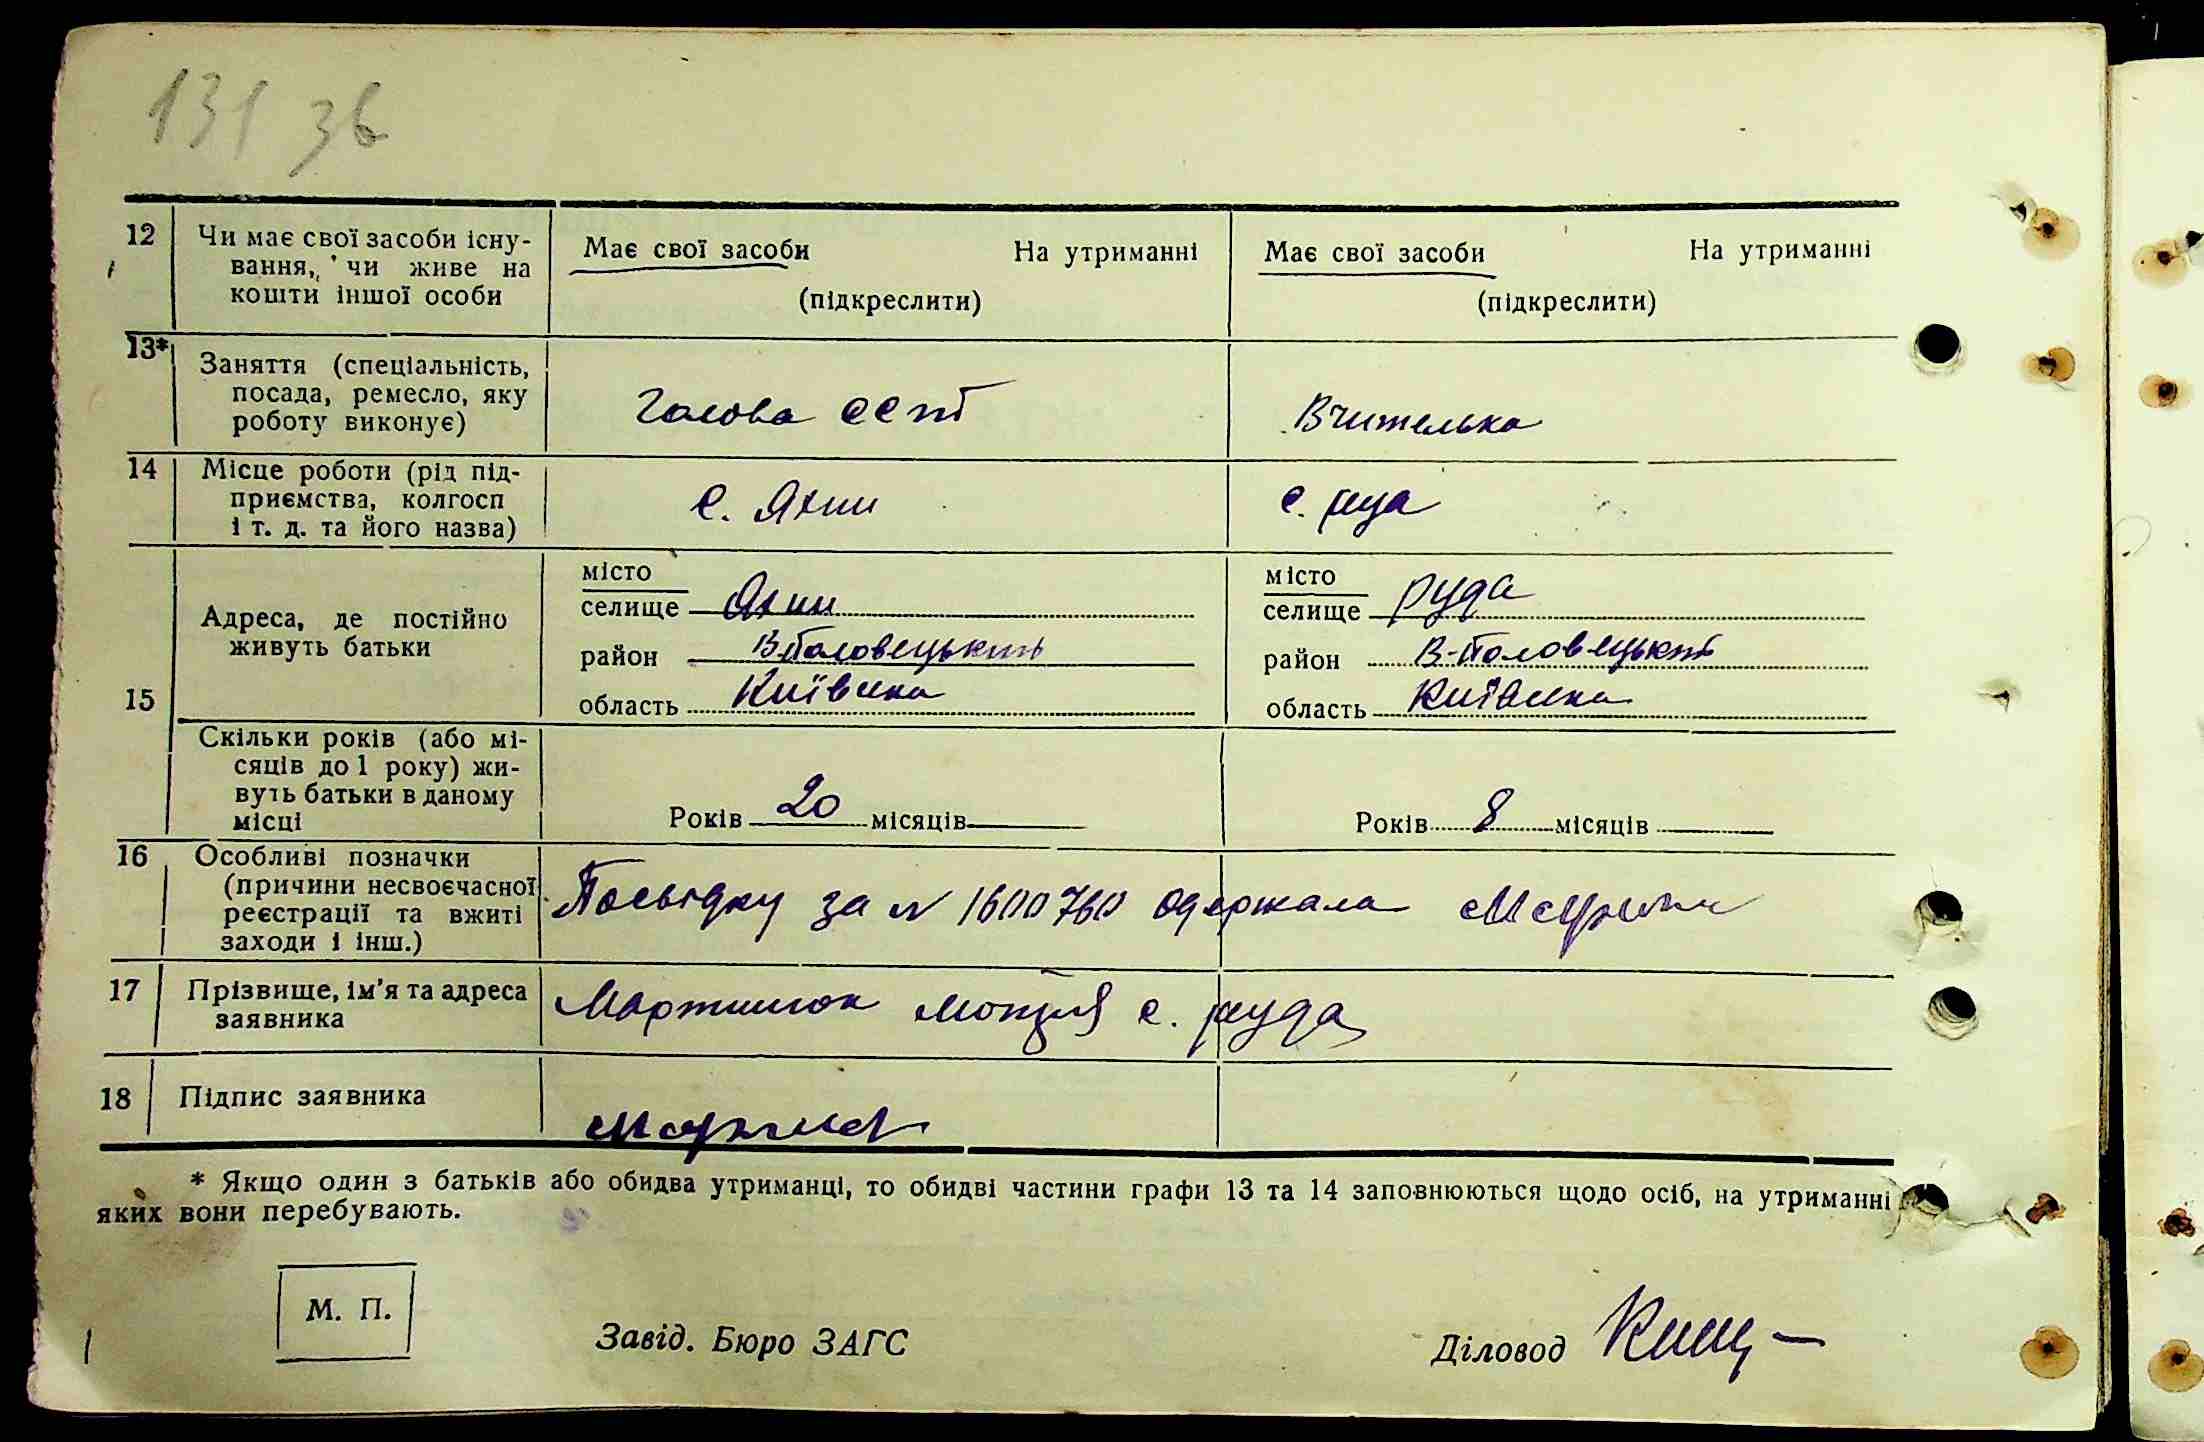 131 зв
12 Чи має свої засоби існу-
вання, чи живе на
кошти іншої особи
Має свої засоби На утриманні
(підкреслити)
Має свої засоби На утриманні
(підкреслити)
13* Заняття (спеціальність,
посада, ремесло, яку
роботу виконує)
Голова
Вчителька
14 Місце роботи (рід під-
приємства, колгосп
і т. д. та його назва)
с. Яхни
с. Руда
15 Адреса, де постійно
живуть батьки
місто
селище Яхни
район В-Половецький
область Київська
місто
селище Руда
район В-Половецький
область Київська
Скільки років (або мі-
сяців до 1 року) жи-
вуть батьки в даному
місці
Років 20 місяців
Років 8 місяців
16 Особливі позначки
(причини несвоєчасної
реєстрації та вжиті
заходи і інш.)
Посвідку за № 1600760 одержала
17 Прізвище, ім’я та адреса
заявника
Мартинюк Мотря с. Руда
18 Підпис заявника
* Якщо один з батьків або обидва утриманці, то обидві частини графи 13 та 14 заповнюються щодо осіб, на утриманні
яких вони перебувають.
М. П.
Завід. Бюро ЗАГС
Діловод